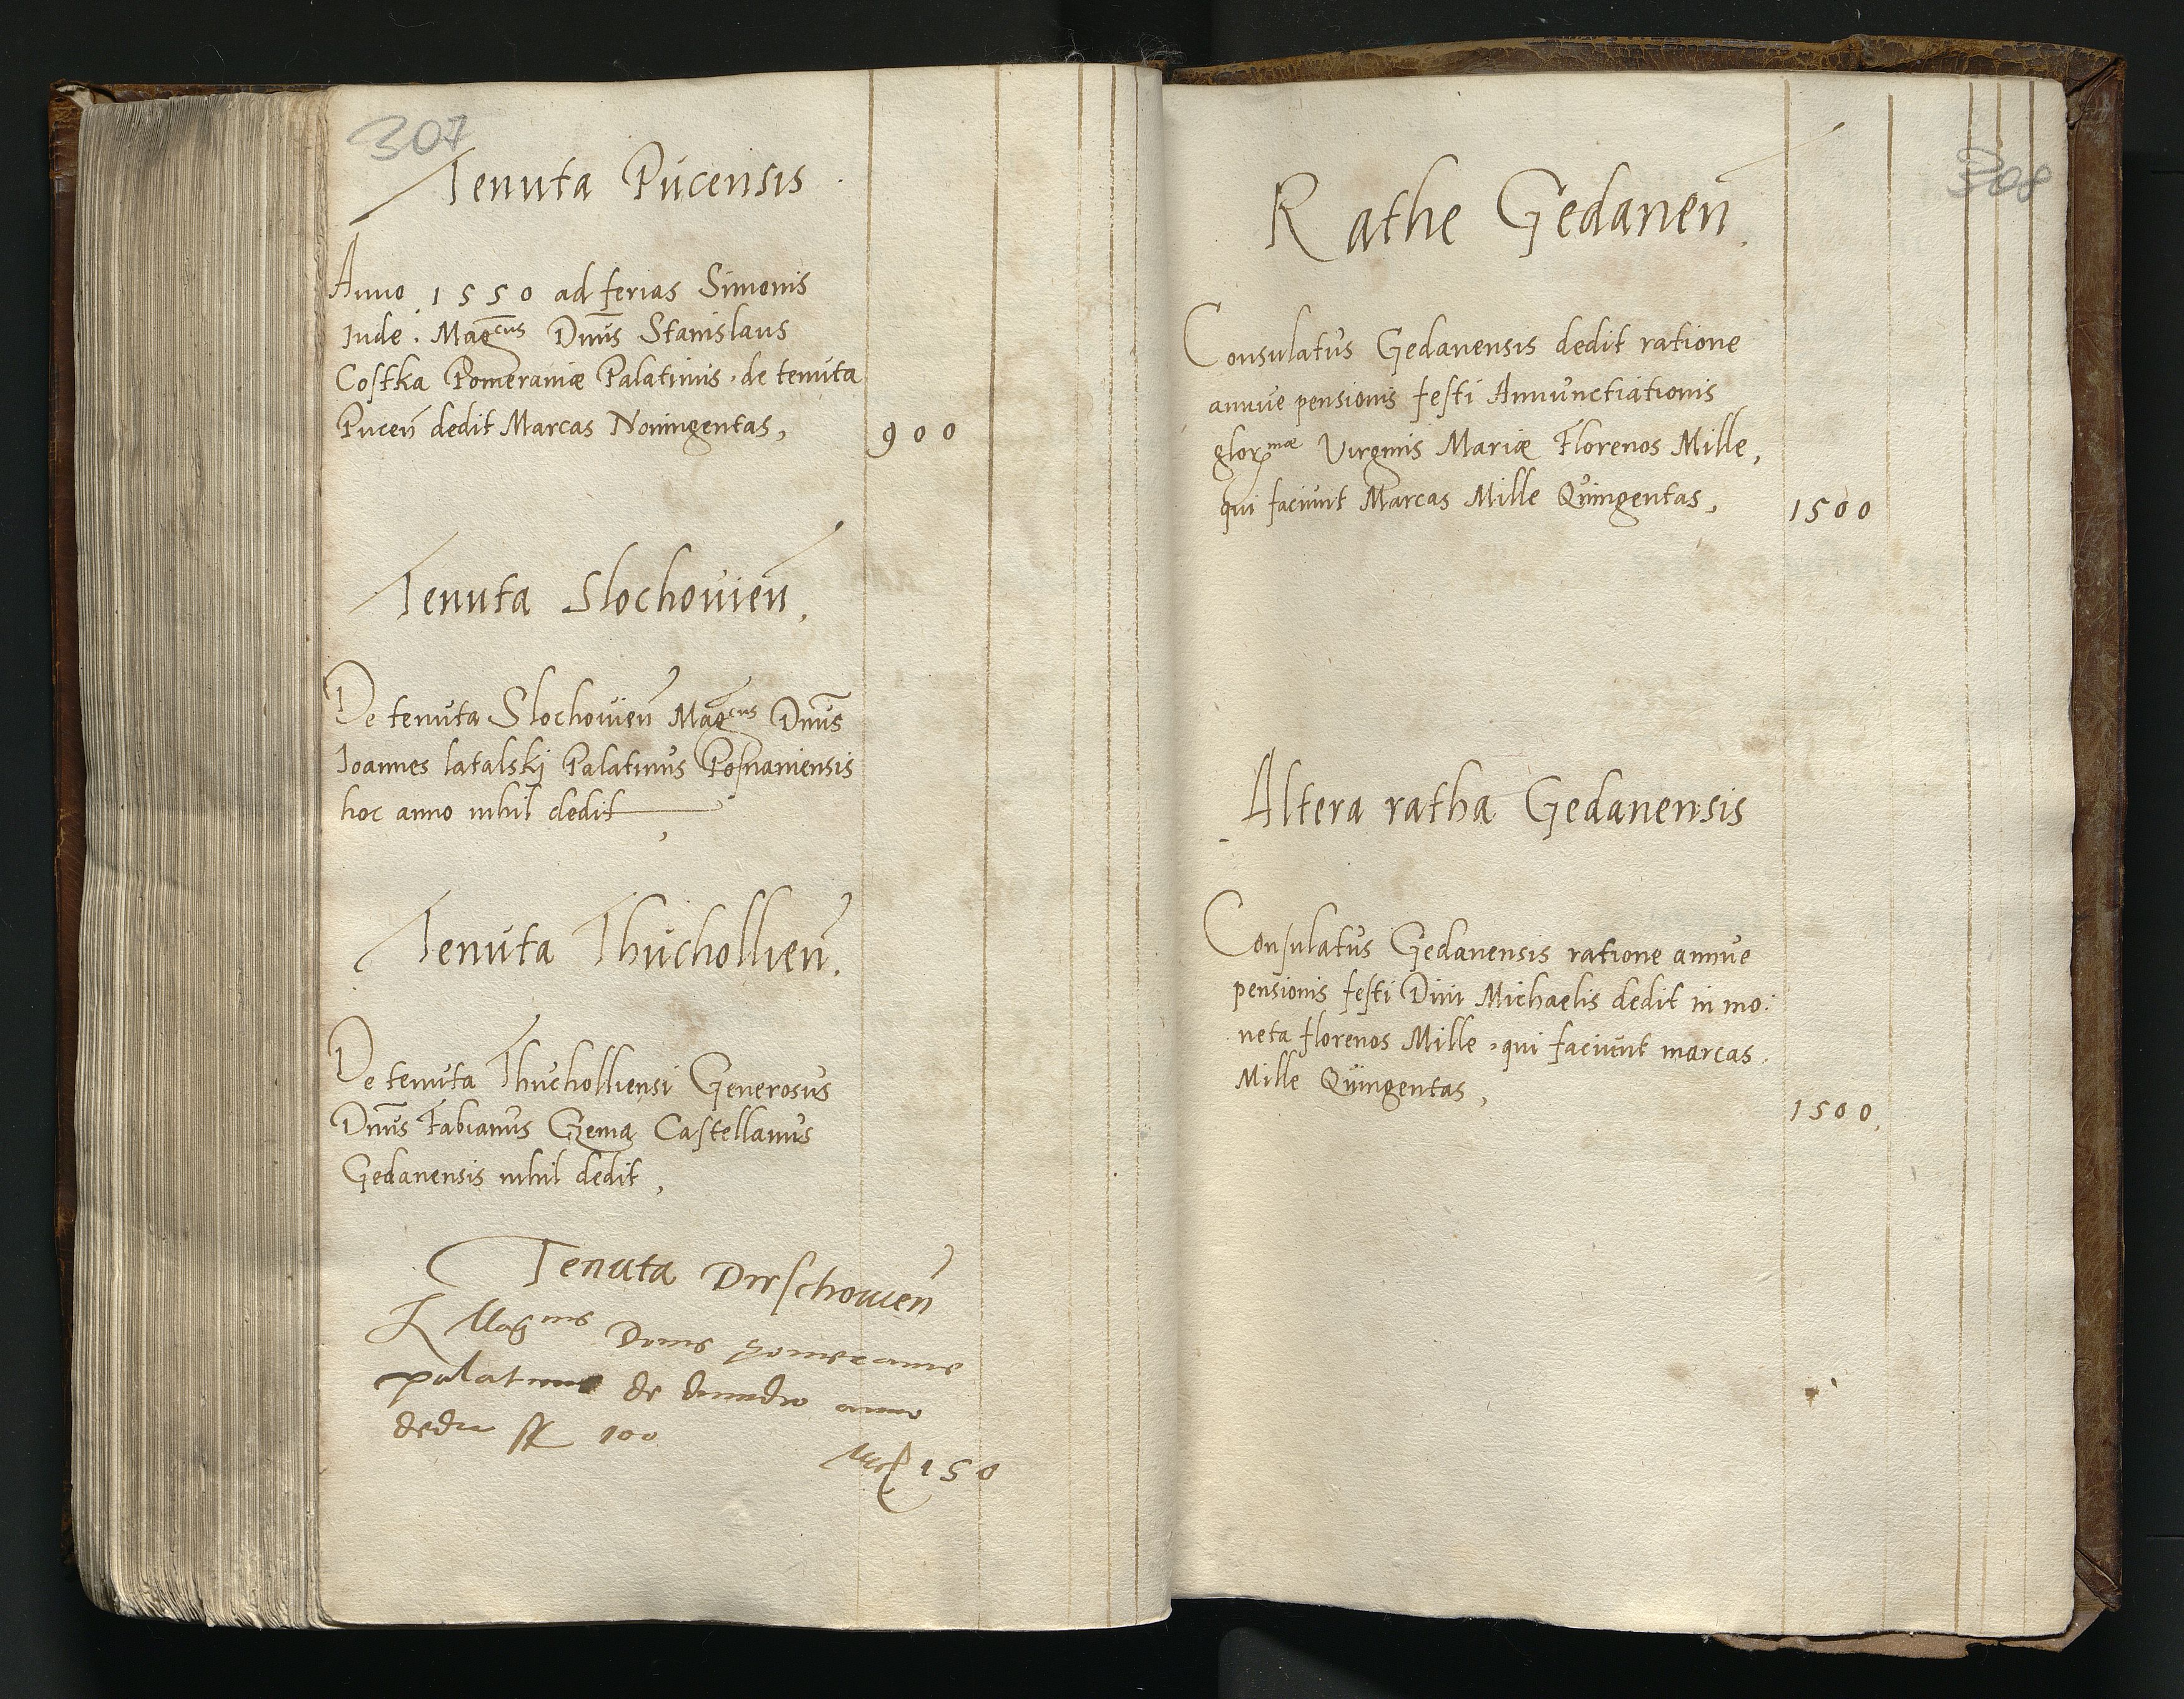 307
Tenuta Pucensis
Anno 1550 ad ferias Simonis
Iude. Mag͠cus Dn͞s Stanislaus
Costka Pomeraniæ Palatinus de tenuta
Pucen̄ dedit Marcas Noningentas, 900
Tenuta Slochouien̄,
De tenuta Slochouien̄ Magcus Dn͞s
Ioannes latalskj Palatinus Posnaniensis
hoc anno nihil dedit,
Tenuta Thuchollien̄.
De tenuta Thucholliensi Generosus
Dn͞s Fabianus Czema Castellanus
Gedanensis nihil dedit,
Tenuta Dirschouien̄
Magcus Dnus pomeranie
palatinus de dimidio anno
dedit fl 100
Mrc 150
308
Rathe Gedanen̄.
Consulatus Gedanensis dedit ratione
annue pensionis festi Annunctiationis
glormæ Virginis Mariæ Florenos Mille,
qui faciunt Marcas Mille Quingentas, 1500
Altera ratha Gedanensis
Consulatus Gedanensis ratione annue
pensionis festi Diui Michaelis dedit in mo:
neta florenos Mille, qui faciunt marcas
Mille Quingentas, 1500,